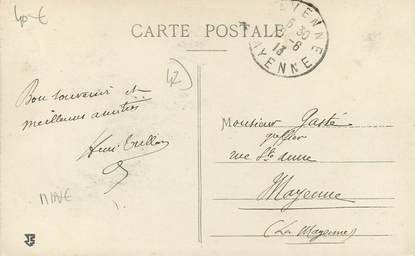 40€
CARTE POSTALE
MAYENNE
6 30
8-6
13
MAYENNE
42
Bon souvenir et
meilleures amitiés
Henri
Monsieur Gasté
greffier
rue Ste Anne
Mayenne
(La Mayenne)
MINE